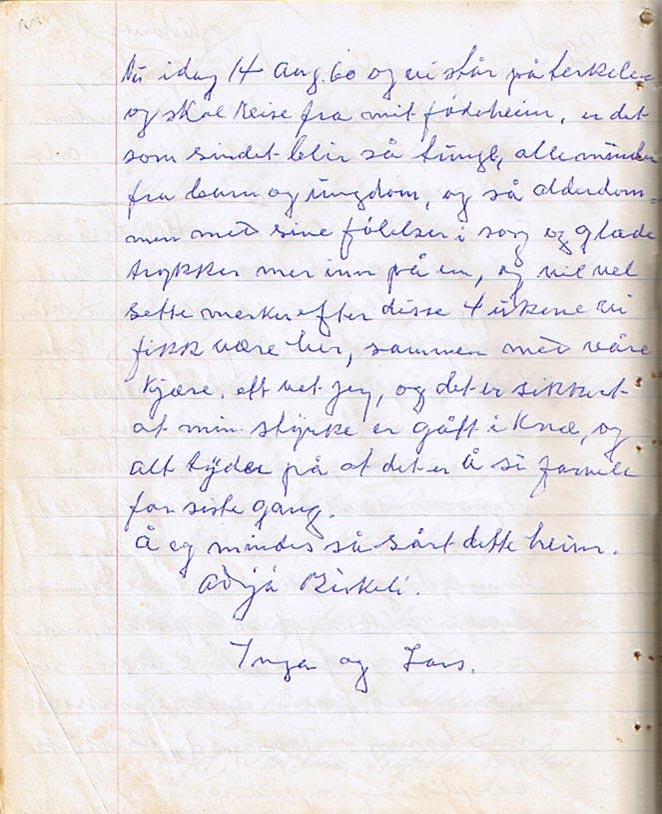 Nu idag 14 aug. 60 og vi står på terkelen
og skal reise fra mit fødeheim, er det
som sindet blir så tungt, alle minder
fra barn og ungdom, og så alderdom-
men med sine følelser i sorg og glæde
trykker mer inn på en, og vil vel
sette merker efter disse 4 ukene vi
fikk være her, sammen med våre
kjære. ett vet jeg, og det er sikkert
at min styrke er gått i Knæ, og
alt tyder på at det er å si farvel
for siste gang.
Å eg mindes så sårt dette heim.
Birkeli.
Inga og Lars.